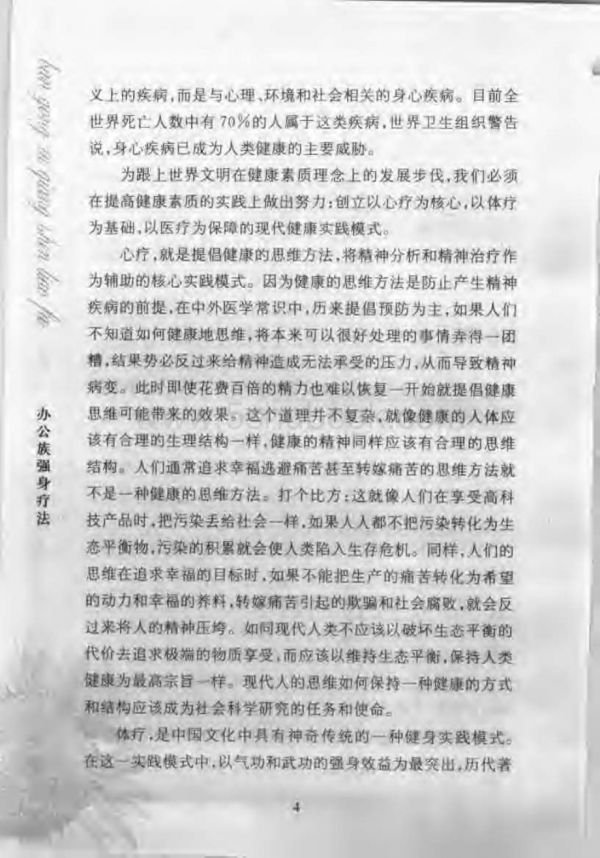 ban gong zu qiang shen liao fa
办公族强身疗法
义上的疾病,而是与心理、环境和社会相关的身心疾病。目前全
世界死亡人数中有70%的人属于这类疾病,世界卫生组织警告
说,身心疾病已成为人类健康的主要威胁。
为跟上世界文明在健康素质理念上的发展步伐,我们必须
在提高健康素质的实践上做出努力:创立以心疗为核心,以体疗
为基础,以医疗为保障的现代健康实践模式。
心疗,就是提倡健康的思维方法,将精神分析和精神治疗作
为辅助的核心实践模式。因为健康的思维方法是防止产生精神
疾病的前提,在中外医学常识中,历来提倡预防为主,如果人们
不知道如何健康地思维,将本来可以很好处理的事情弄得一团
糟,结果势必反过来给精神造成无法承受的压力,从而导致精神
病变。此时即使花费百倍的精力也难以恢复一开始就提倡健康
思维可能带来的效果。这个道理并不复杂,就像健康的人体应
该有合理的生理结构一样,健康的精神同样应该有合理的思维
结构。人们通常追求幸福逃避痛苦甚至转嫁痛苦的思维方法就
不是一种健康的思维方法。打个比方:这就像人们在享受高科
技产品时,把污染丢给社会一样,如果人人都不把污染转化为生
态平衡物,污染的积累就会使人类陷入生存危机。同样,人们的
思维在追求幸福的目标时,如果不能把生产的痛苦转化为希望
的动力和幸福的养料,转嫁痛苦引起的欺骗和社会腐败,就会反
过来将人的精神压垮。如同现代人类不应该以破坏生态平衡的
代价去追求极端的物质享受,而应该以维持生态平衡,保持人类
健康为最高宗旨一样。现代人的思维如何保持一种健康的方式
和结构应该成为社会科学研究的任务和使命。
体疗,是中国文化中具有神奇传统的一种健身实践模式。
在这一实践模式中,以气功和武功的强身效益为最突出,历代著
4